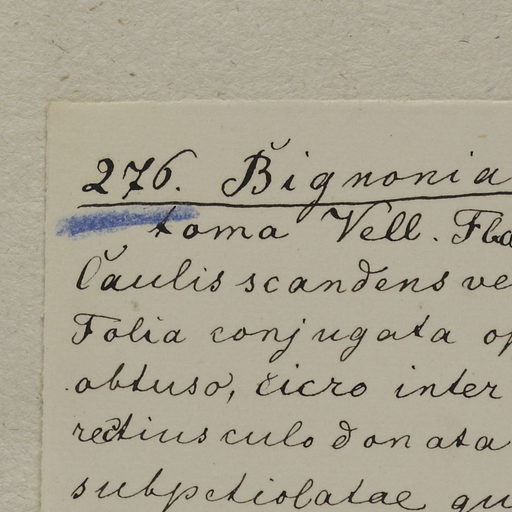 276. Bignonia
toma Vell. Flo
Caulis scandens ve
Folia conjugata op
obtuso, cicro inter
rectiusculo donata
subpetiolatae qu